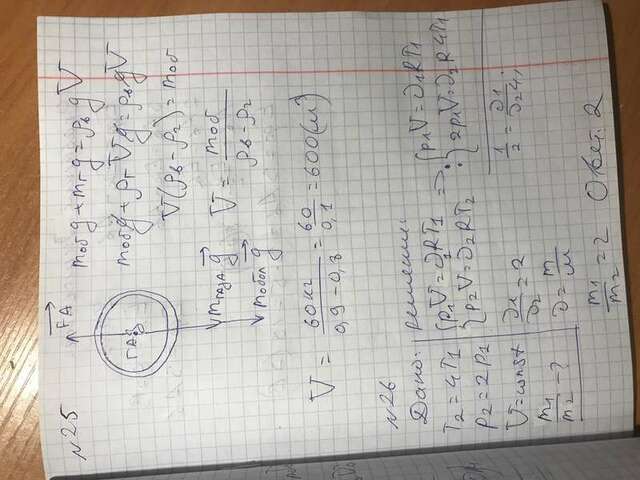 N25
FA
ГАЗ
mгаза g
mобол g
mобg + mгg = ρвgV
mобg + ρгVg = ρвgV
V(ρв - ρг) = mоб
V = mоб / ρв - ρг
V = 60кг / 0,9 - 0,8 = 60 / 0,1 = 600 (м³)
N26
Дано:
T2 = 4T1
P2 = 2P1
V = const
m1/m2 - ?
решение:
{p1V = ν1RT1
{p2V = ν2RT2
=> : {p1V = ν1RT1
{2p1V = ν2R4T1
1/2 = ν1/ν2·4
ν1/ν2 = 2
ν = m/M
m1/m2 = 2
Ответ: 2